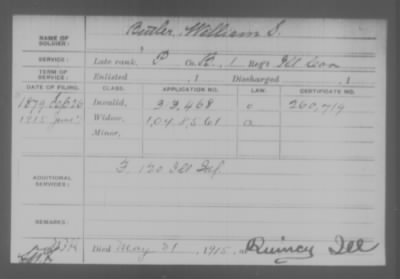 NAME OF SOLDIER: Butler, William S.
SERVICE: Late rank, P Co. K, 1 Reg't Ill Cav
TERM OF SERVICE: Enlisted , 1 Discharged , 1
DATE OF FILING. CLASS. APPLICATION NO. LAW. CERTIFICATE NO.
1879 Feb 26 Invalid, 33,468 c 260,719
1915 June Widow, 1,048,561 a
Minor,
ADDITIONAL SERVICES: F, 120 Ill Inf.
REMARKS:
Died May 21, 1915, at Quincy Ill